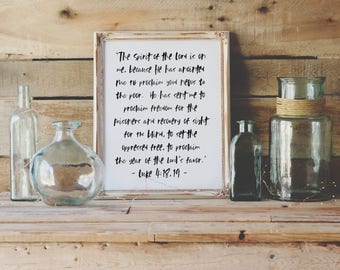 "The Spirit of the Lord is on
me, because He has anointed
me to proclaim good news to
the poor. He has sent me to
proclaim freedom for the
prisoners and recovery of sight
for the blind, to set the
oppressed free, to proclaim
the year of the Lord's favor."
- Luke 4:18,19 -